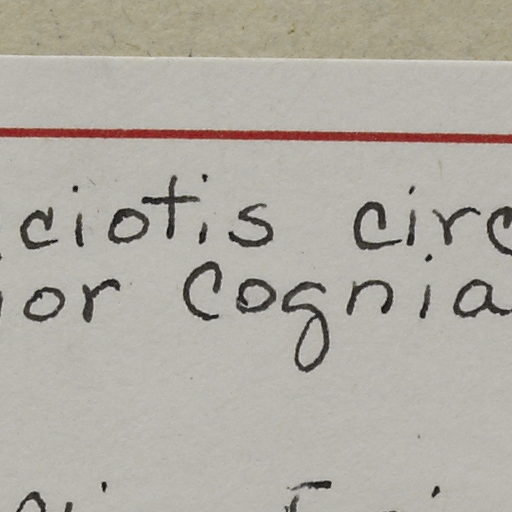 ciotis circ
ior Cognia